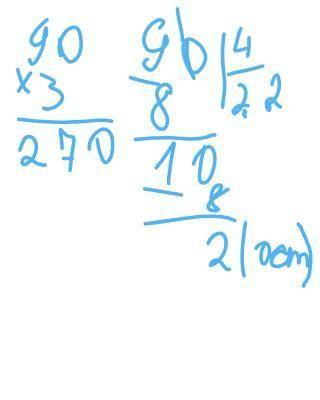 90
× 3
270
90 | 4
- 8 | 2, 2
10
- 8
2 (ост)